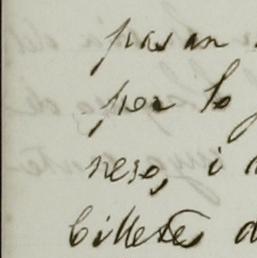 pasan
por lo
nero, i
billetes d